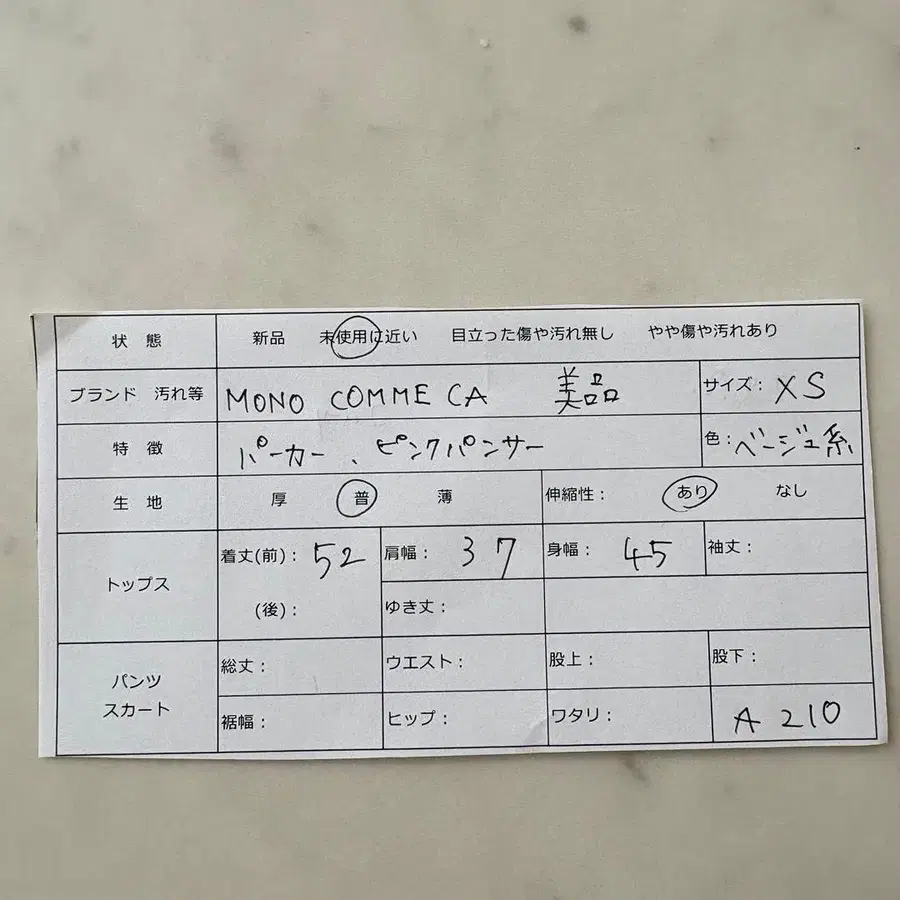 状 態 新品 未使用に近い 目立った傷や汚れ無し やや傷や汚れあり
ブランド 汚れ等 MONO COMME CA 美品 サイズ: XS
特 徴 パーカー、ピンクパンサー 色: ベージュ系
生 地 厚 普 薄 伸縮性: あり なし
トップス 着丈(前): 52 肩幅: 37 身幅: 45 袖丈:
(後): ゆき丈:
パンツ スカート 総丈: ウエスト: 股上: 股下:
裾幅: ヒップ: ワタリ: A 210